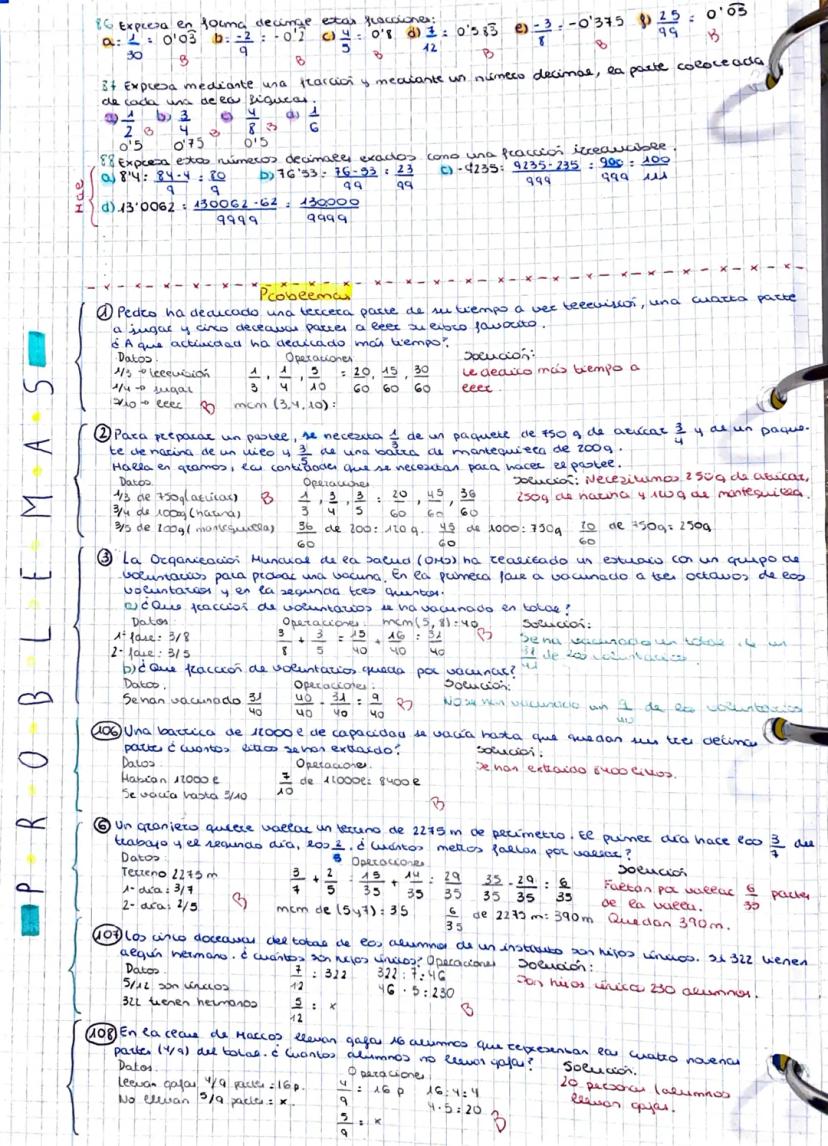 86 Expresa en forma decimal estas fracciones:
a: 1/30 = 0'03 b: -2/9 = -0'2 c) 4/5 = 0'8 d) 7/12 = 0'583 e) -3/8 = -0'375 f) 25/99 = 0'03
B B B B B
87 Expresa mediante una fracción y mediante un número decimal, la parte coloreada
de cada una de las figuras.
a) 1/2 B b) 3/4 B c) 4/8 B d) 1/6
0'5 0'75 0'5
88 Expresa estos números decimales exactos como una fracción irreducible.
Mal
a) 8'4 = 84-4/9 = 80/9 b) 76'53 = 76-53/99 = 23/99 c) -4235 = 9235-235/999 = 900/999 = 100/111
d) 13'0062 = 130062-62/9999 = 130000/9999
Problemas
PROBLEMAS
① Pedro ha dedicado una tercera parte de su tiempo a ver televisión, una cuarta parte
a jugar y cinco deceavas partes a leer su libro favorito.
¿A que actividad ha dedicado más tiempo?
Datos. Operaciones Solución:
1/3 → televisión 1/3, 1/4, 5/10 = 20/60, 15/60, 30/60 Le dedico más tiempo a
1/4 → jugar leer.
5/10 → leer B mcm (3,4,10):
② Para preparar un pastel, se necesita 1/3 de un paquete de 750 g de azúcar 3/4 y de un paque-
te de harina de un kilo y 3/5 de una barra de mantequilla de 200g.
Halla en gramos, las cantidades que se necesitan para hacer el pastel.
Datos. Operaciones Solución: Necesitamos 250g de azúcar,
1/3 de 750g (azúcar) B 1/3, 3/4, 3/5 = 20/60, 45/60, 36/60 750g de harina y 120g de mantequilla.
3/4 de 1000g (harina)
3/5 de 200g (mantequilla) 36/60 de 200: 120g. 45/60 de 1000: 750g 20/60 de 750g = 250g
③ La Organización Mundial de la Salud (OMS) ha realizado un estudio con un grupo de
voluntarios para probar una vacuna. En la primera fase a vacunado a tres octavos de los
voluntarios y en la segunda tres quintos.
a) ¿Que fracción de voluntarios se ha vacunado en total?
Datos. Operaciones: mcm (5,8) = 40 Solución:
1ª fase: 3/8 3/8 + 3/5 = 15/40 + 16/40 = 31/40 B Se ha vacunado un total de un
2ª fase: 3/5 31/41 de los voluntarios.
b) ¿Que fracción de voluntarios queda por vacunar?
Datos. Operaciones: Solución:
Se han vacunado 31/40 40/40 - 31/40 = 9/40 B No se han vacunado un 9/40 de los voluntarios
106 Una barrica de 12000 l de capacidad se vacía hasta que quedan sus tres decimas
partes ¿cuántos litros se han extraído?
Datos. Operaciones. Solución:
Habían 12000 l 7/10 de 12000l = 8400 l Se han extraído 8400 litros.
Se vacía hasta 3/10
B
⑥ Un granjero quiere vallar un terreno de 2275 m de perímetro. El primer día hace los 3/7 del
trabajo y el segundo día, los 2/5. ¿Cuántos metros faltan por vallar?
Datos: Operaciones Solución
Terreno 2275 m 3/7 + 2/5 = 15/35 + 14/35 = 29/35 35/35 - 29/35 = 6/35 Faltan por vallar 6/35 partes
1º día: 3/7 de la valla.
2º día: 2/5 B mcm de (5 y 7) = 35 6/35 de 2275 m = 390m Quedan 390m.
107 Los cinco doceavas del total de los alumnos de un instituto son hijos únicos. Si 322 tienen
algún hermano. ¿Cuántos son hijos únicos? Operaciones Solución:
Datos 7/12 = 322 322:7=46 Son hijos única 230 alumnos.
5/12 son únicos 46·5=230
322 tienen hermanos 5/12 = x B
108 En la clase de Marcos llevan gafas 16 alumnos que representan las cuatro novenas
partes (4/9) del total. ¿Cuántos alumnos no llevan gafas?
Datos. Operaciones. Solución.
Llevan gafas 4/9 partes = 16 p. 4/9 = 16 p 16:4=4 20 personas (alumnos
No llevan 5/9 partes = x. 4·5=20 B llevan gafas.
5/9 = x